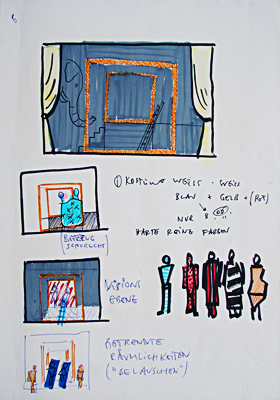 ① KOSTÜME WEISS - WEISS
BLAU + GELB + (ROT)
NUR
HARTE REINE FARBEN
VISIONS
EBENE
GETRENNTE
RÄUMLICHKEITEN
("BELAUSCHEN")